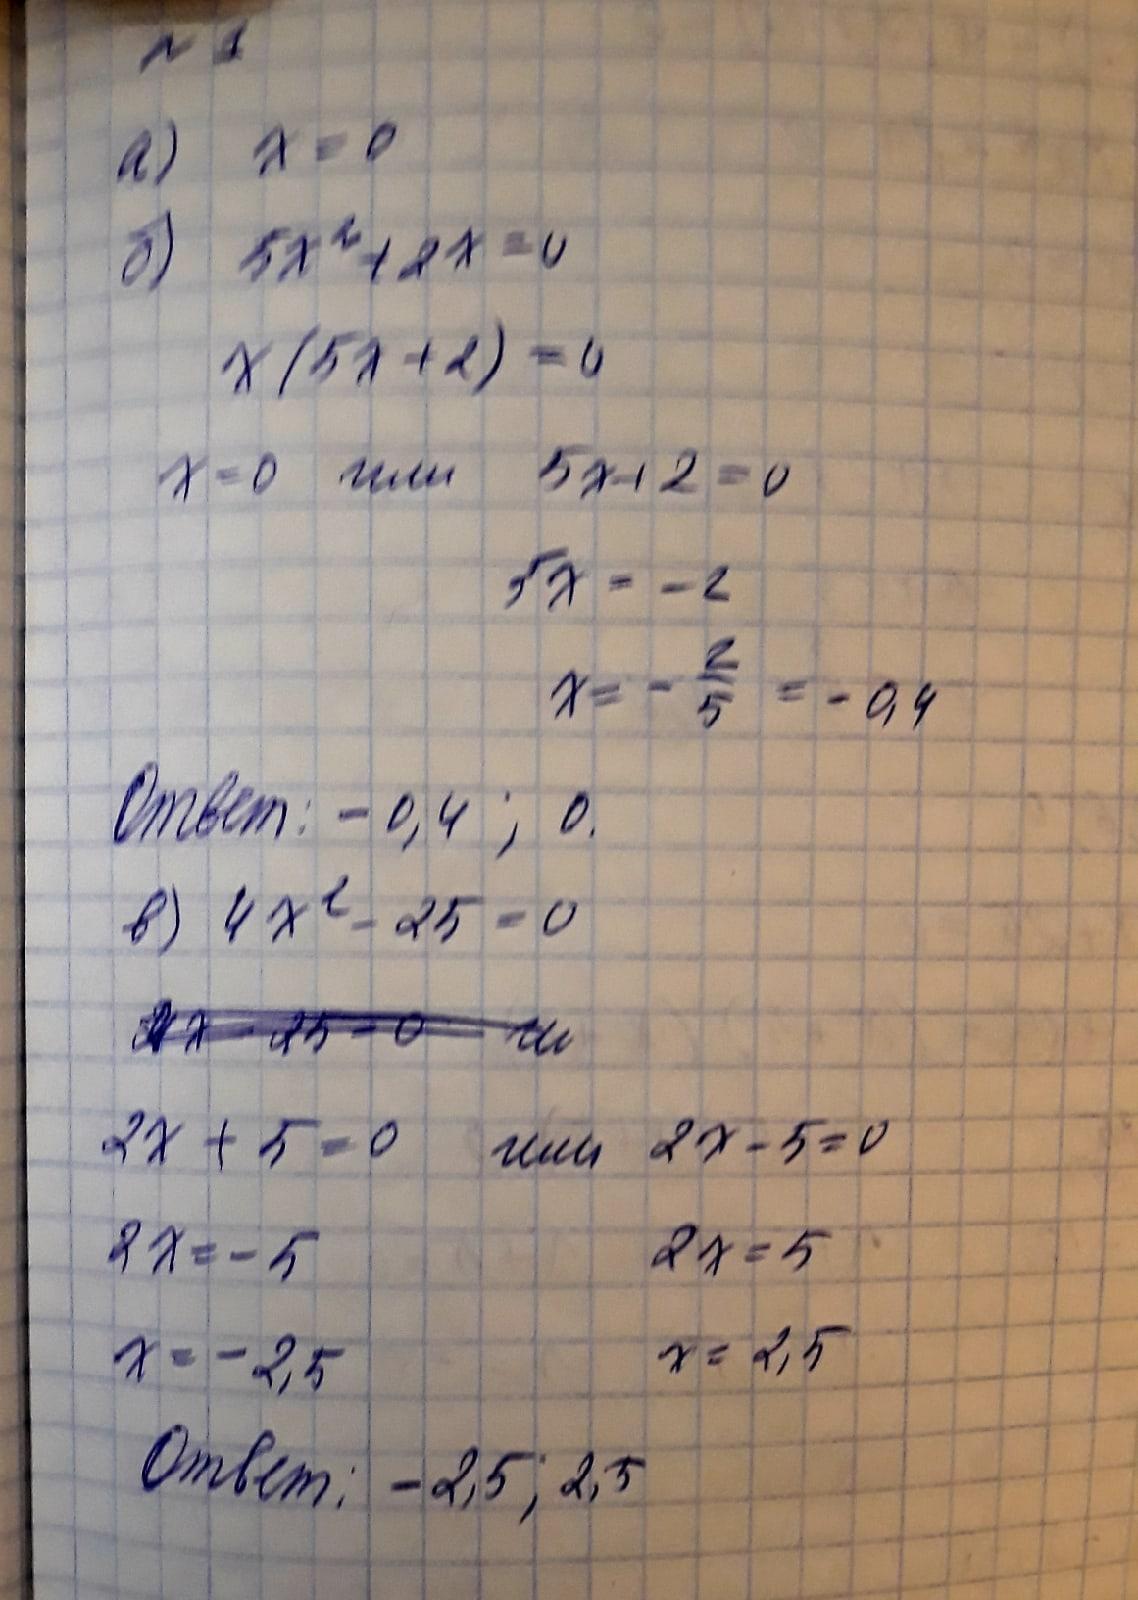 № 1
а) x = 0
б) 5x² + 2x = 0
x(5x + 2) = 0
x = 0 или 5x + 2 = 0
5x = -2
x = - 2/5 = - 0,4
Ответ: - 0,4 ; 0.
в) 4x² - 25 = 0
2x + 5 = 0 или 2x - 5 = 0
2x = - 5 2x = 5
x = - 2,5 x = 2,5
Ответ: - 2,5 ; 2,5